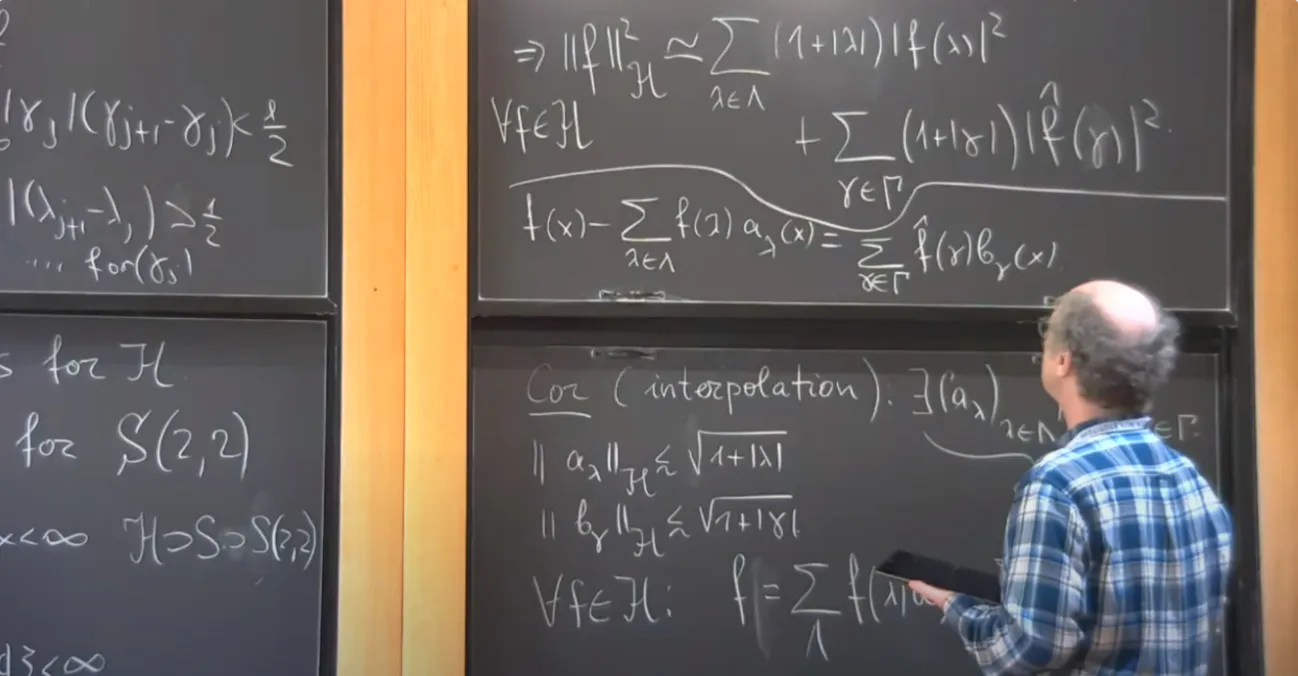 |γj|(γj+1-γj)<½
|(λj+1-λj)>½
.... for(γj)
s for ℋ
for S(2,2)
<∞ ℋ⊃S⊃S(2,2)
<∞
⇒ ||f||²_ℋ ≃ ∑_{λ∈Λ} (1+|λ|)|f(λ)|²
∀f∈ℋ + ∑_{γ∈Γ} (1+|γ|)|f̂(γ)|².
f(x)-∑_{λ∈Λ} f(λ)a_λ(x)=∑_{γ∈Γ} f̂(γ)b_γ(x)
Cor (interpolation): ∃(a_λ)_{λ∈Λ} ∈Γ
||a_λ||_ℋ ≲ √1+|λ|
||b_γ||_ℋ ≲ √1+|γ|
∀f∈ℋ: f=∑_Λ f(λ)a